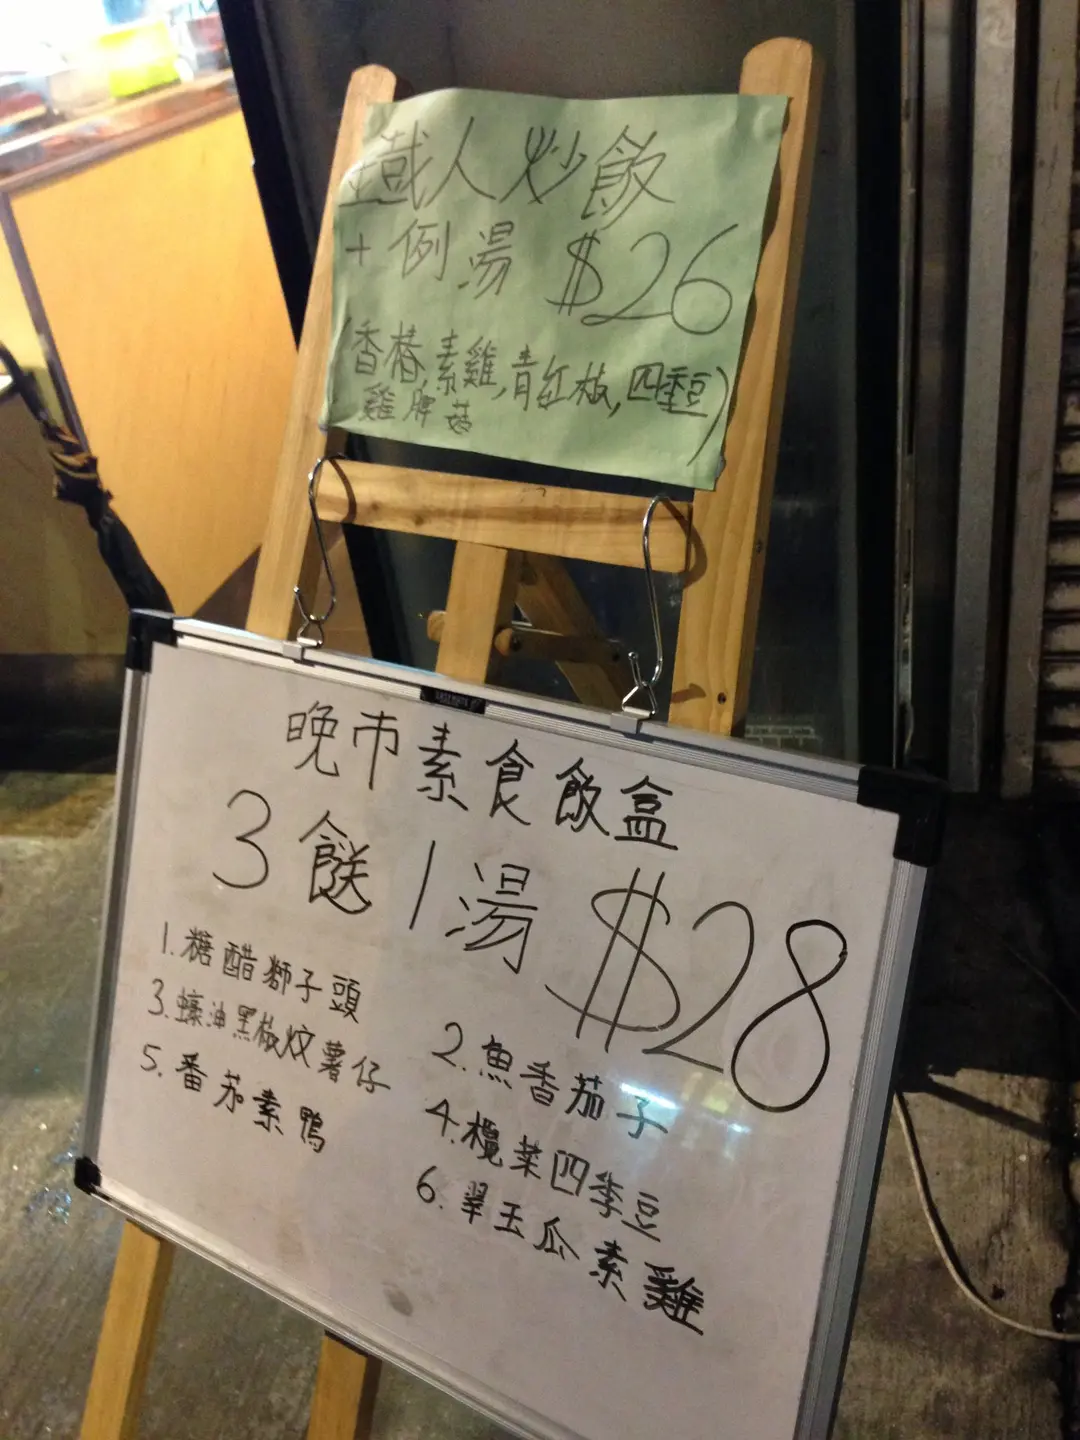 鐵人炒飯
+例湯 $26
(香椿,素雞,青紅椒,四季豆)
雞脾菇
晚市素食飯盒
3餸1湯 $28
1.糖醋獅子頭
2.魚香茄子
3.蠔油黑椒炆薯仔
4.欖菜四季豆
5.番茄素鴨
6.翠玉瓜素雞